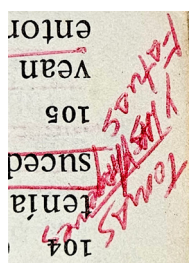 104
tenía
suced
105
vean
enton
TOMAS
Y LAS
Fatuas